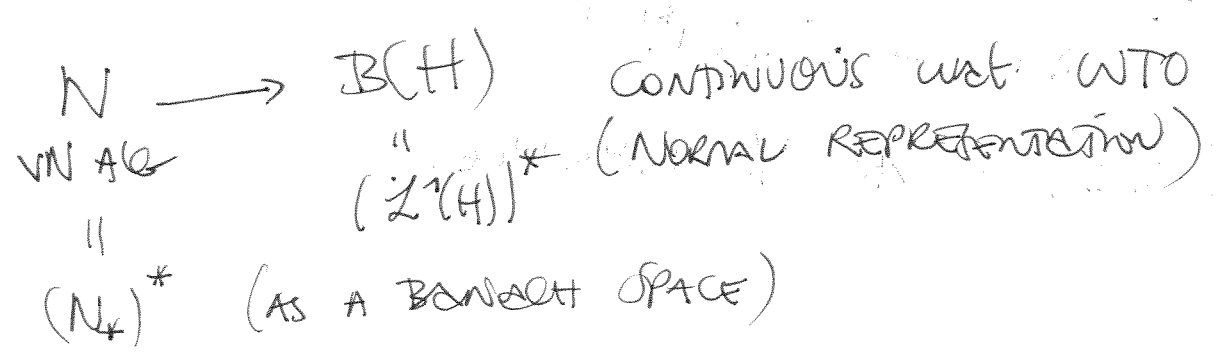 N ⟶ B(H) CONTINUOUS wrt. WTO
VN ALG = (L¹(H))* (NORMAL REPRESENTATION)
=
(N_*)* (AS A BANACH SPACE)